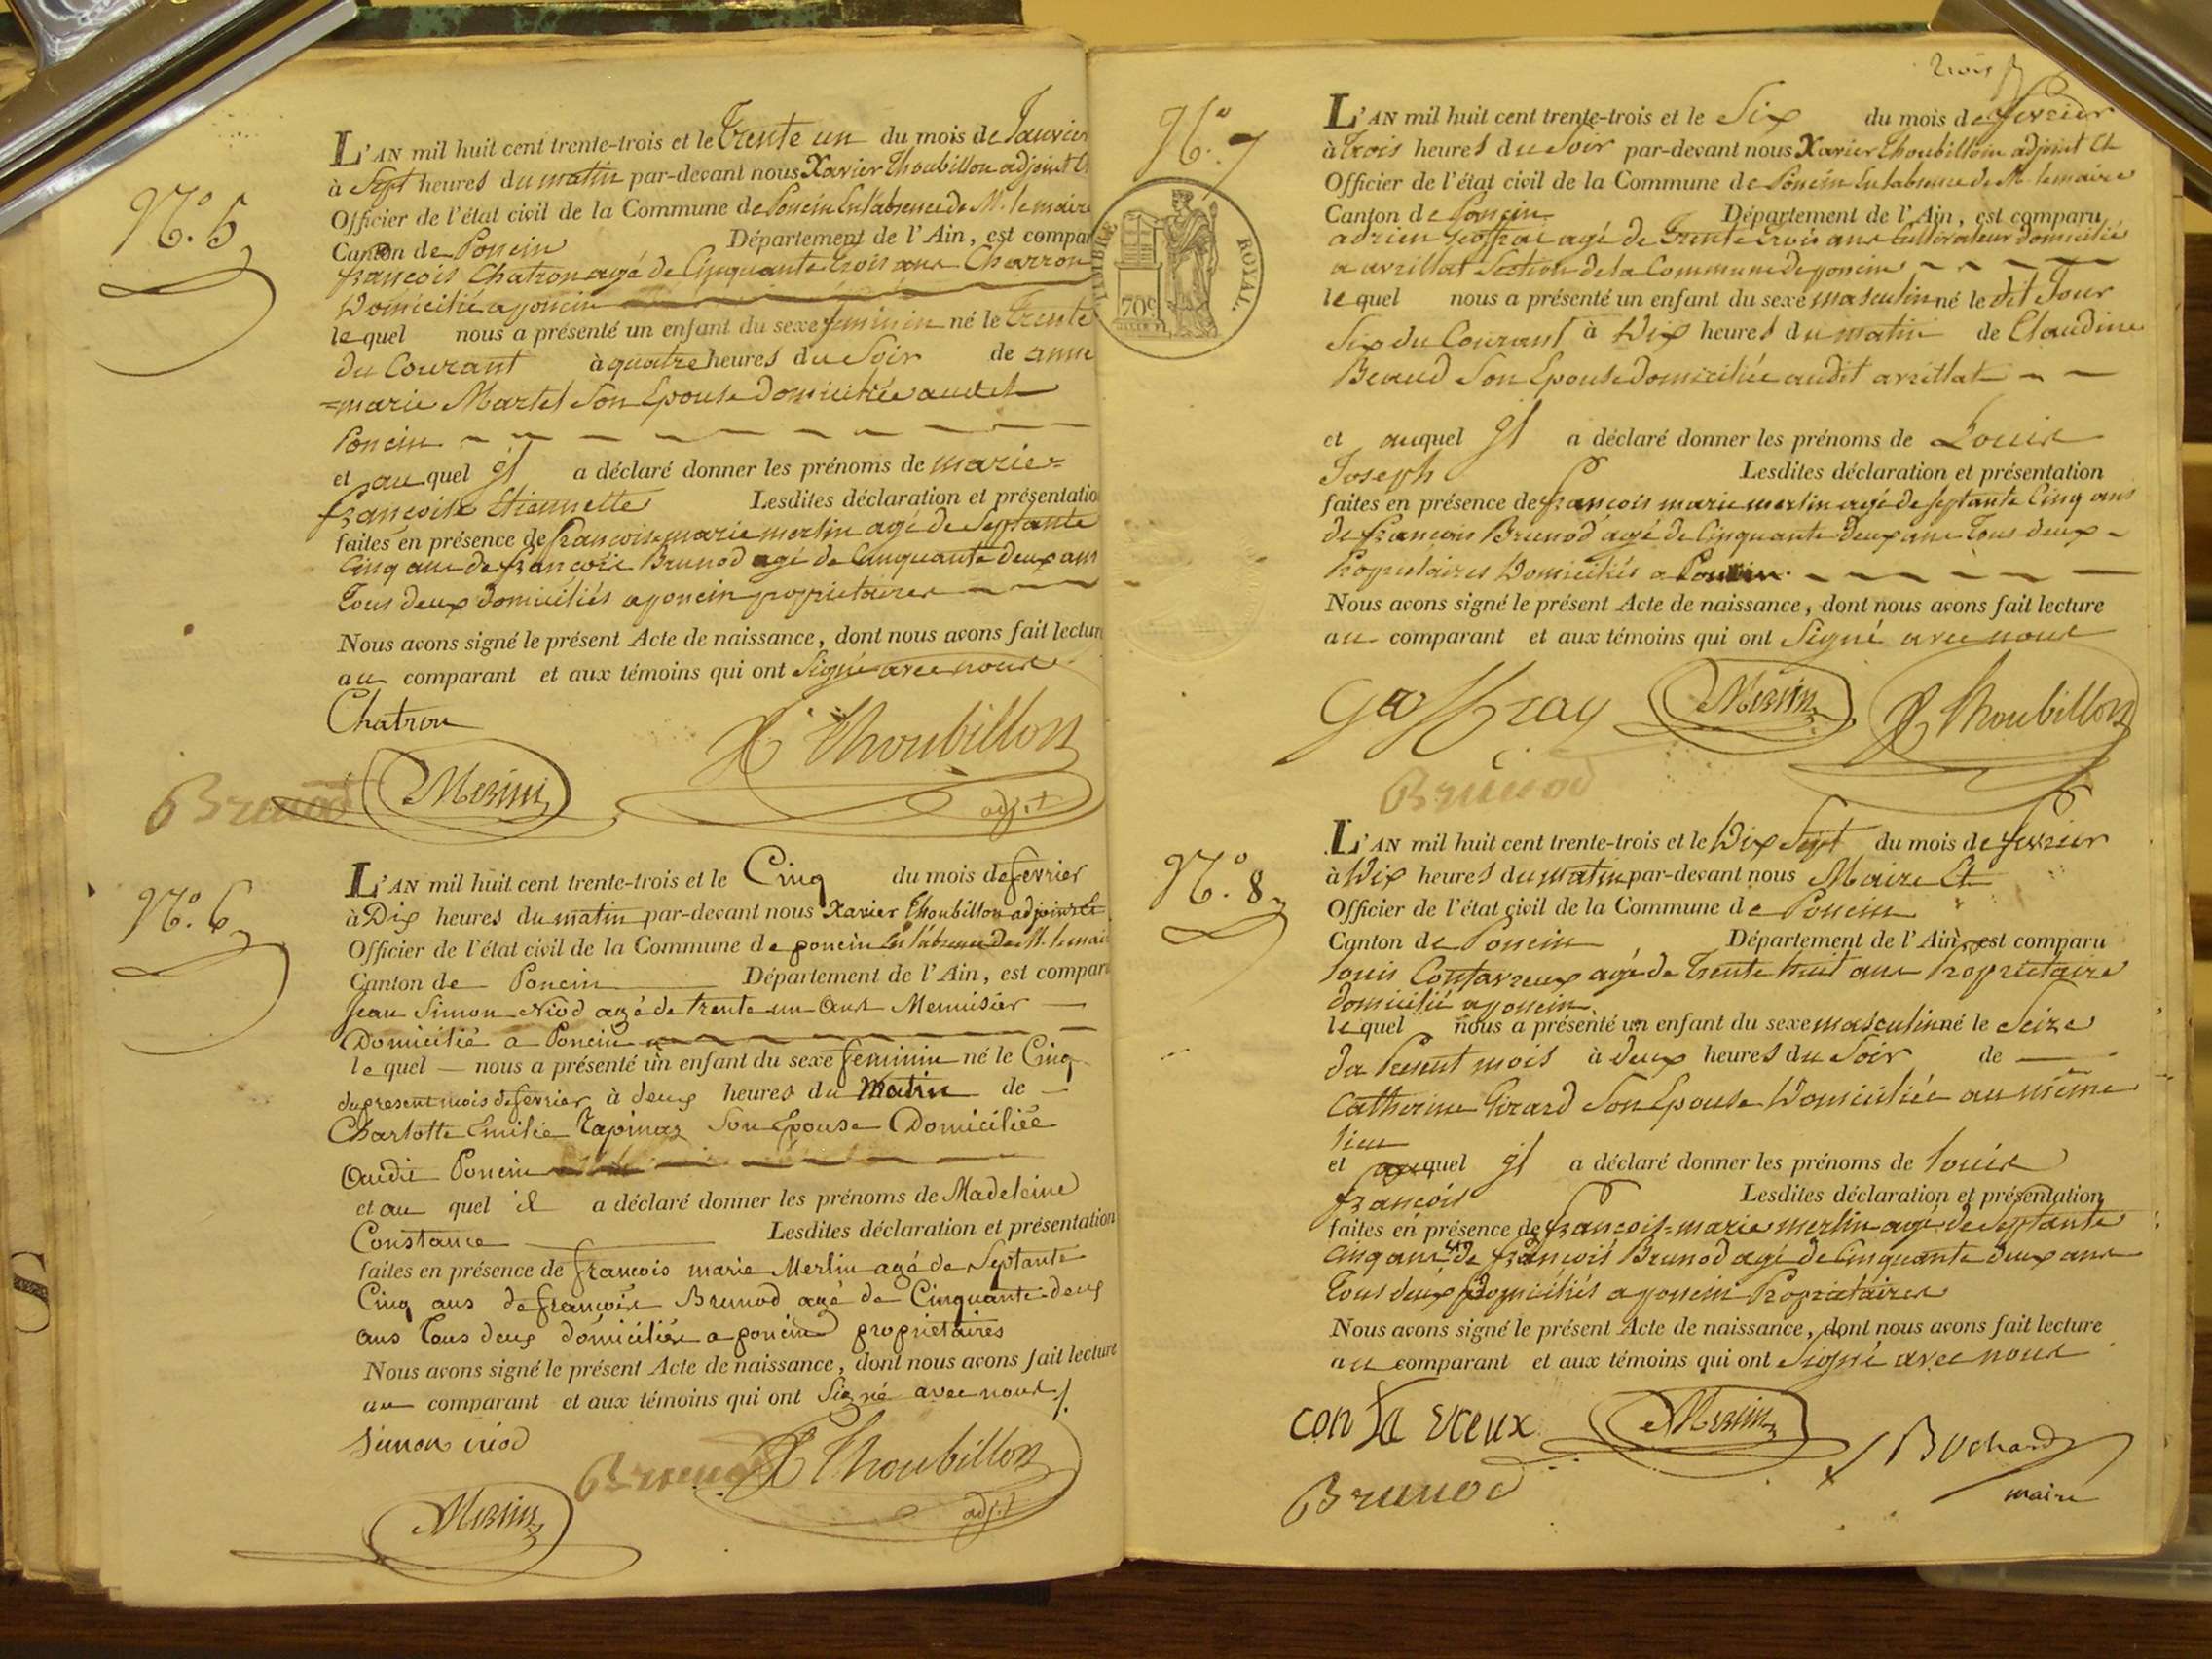 N.° 5
L'AN mil huit cent trente-trois et le Trente un du mois de Janvier
à Sept heures du matin par-devant nous Xavier Thoubillon adjoint Et
Officier de l'état civil de la Commune de Poncin En l'absence de M. le maire
Canton de Poncin Département de l'Ain, est compar
françois Chatron agé de Cinquante trois ans Charron
Domicilié a poncin
le quel nous a présenté un enfant du sexe feminin né le Trente
du Courant à quatre heures du Soir de anne
=marie Martel Son Epouse domiciliée audit
Poncin
et au quel Jl a déclaré donner les prénoms de marie=
françoise Etiennette Lesdites déclaration et présentatio
faites en présence de françois marie merlin agé de Septante
Cinq ans de françois Brunod agé de Cinquante deux ans
Tous deux domiciliés a poncin proprietaires
Nous avons signé le présent Acte de naissance, dont nous avons fait lectur
au comparant et aux témoins qui ont Signé avec nous
Chatron
X Thoubillon
Brunod Merlin adj.t
N.° 6
L'AN mil huit cent trente-trois et le Cinq du mois de fevrier
à Dix heures du matin par-devant nous Xavier Thoubillon adjoint Et
Officier de l'état civil de la Commune de poncin En l'absence de M. le mair
Canton de Poncin Département de l'Ain, est compar
Jean Simon Niod agé de trente un ans Menuisier
Domicilié a Poncin
le quel nous a présenté un enfant du sexe feminin né le Cinq
du present mois de fevrier à deux heures du Matin de
Charlotte Emilie Son Epouse Domiciliée
Audit Poncin
et au quel il a déclaré donner les prénoms de Madeleine
Constance Lesdites déclaration et présentation
faites en présence de françois marie Merlin agé de Septante
Cinq ans de françois Brunod agé de Cinquante deux
ans Tous deux domiciliés a poncin proprietaires
Nous avons signé le présent Acte de naissance, dont nous avons fait lecture
au comparant et aux témoins qui ont Signé avec nous
Simon niod
Brunod X Thoubillon
Merlin adj.t
trois
N.° 7
TIMBRE ROYAL.
70c
L'AN mil huit cent trente-trois et le Six du mois de fevrier
à Trois heures du Soir par-devant nous Xavier Thoubillon adjoint Et
Officier de l'état civil de la Commune de Poncin En l'absence de M. le maire
Canton de Poncin Département de l'Ain, est comparu
adrien Geoffrai agé de Trente Trois ans Cultivateur domicilié
a avrillat Section de la Commune de poncin
le quel nous a présenté un enfant du sexe masculin né le dit Jour
Six du Courant à Dix heures du matin de Claudine
Beaud Son Epouse domiciliée audit avrillat
et auquel Jl a déclaré donner les prénoms de Louis
Joseph Lesdites déclaration et présentation
faites en présence de françois marie merlin agé de septante Cinq ans
de françois Brunod agé de Cinquante deux ans Tous deux
Propriétaires Domiciliés a Poncin.
Nous avons signé le présent Acte de naissance, dont nous avons fait lecture
au comparant et aux témoins qui ont Signé avec nous
Merlin X Thoubillon
Brunod
N.° 8
L'AN mil huit cent trente-trois et le Dix Sept du mois de fevrier
à Dix heures du matin par-devant nous Maire Et
Officier de l'état civil de la Commune de Poncin
Canton de Poncin, Département de l'Ain, est comparu
louis Contavreux agé de Trente huit ans Propriétaire
domicilié a poncin
le quel nous a présenté un enfant du sexe masculin né le Seize
du Present mois à deux heures du Soir de
Catherine Girard Son Epouse Domiciliée au même
lieu
et auquel Jl a déclaré donner les prénoms de louis
françois Lesdites déclaration et présentation
faites en présence de françois=marie merlin agé de Septante
Cinq ans de françois Brunod agé de Cinquante deux ans
Tous deux Domiciliés a poncin Proprietaires
Nous avons signé le présent Acte de naissance, dont nous avons fait lecture
au comparant et aux témoins qui ont Signé avec nous
conta vreux Merlin
Bochard
Brunod maire